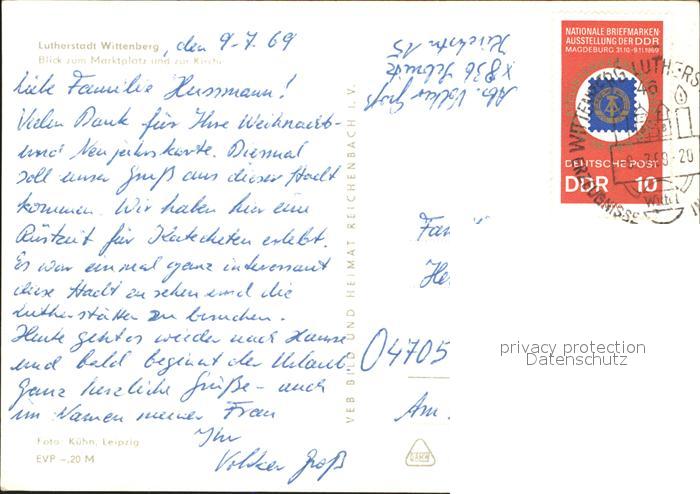 Lutherstadt Wittenberg, den 9-7.69
Blick zum Marktplatz und zur Kirche
Liebe Familie Hussmann!
Vielen Dank für Ihre Weihnacht-
und Neujahrskarte. Diesmal
soll unser Gruß aus dieser Stadt
kommen. Wir haben hier eine
Rüstzeit für Katecheten erlebt.
Es war einmal ganz interessant
diese Stadt zu sehen und die
Lutherstätten zu besuchen.
Heute geht es wieder nach Hause
und bald beginnt der Urlaub
Ganz herzliche Grüße - auch
im Namen meiner Frau
Ihr
Volker Groß
Foto: Kühn, Leipzig
EVP -,20 M
VEB BILD UND HEIMAT REICHENBACH I. V.
Ab. Volker Groß
X 836 Sebnitz
15
NATIONALE BRIEFMARKEN-
AUSSTELLUNG DER DDR
MAGDEBURG 31.10.-9.11.1969
DEUTSCHE POST
DDR 10
WITTENBERG LUTHERS
46
Fam
He
04705
Am.
privacy protection
Datenschutz